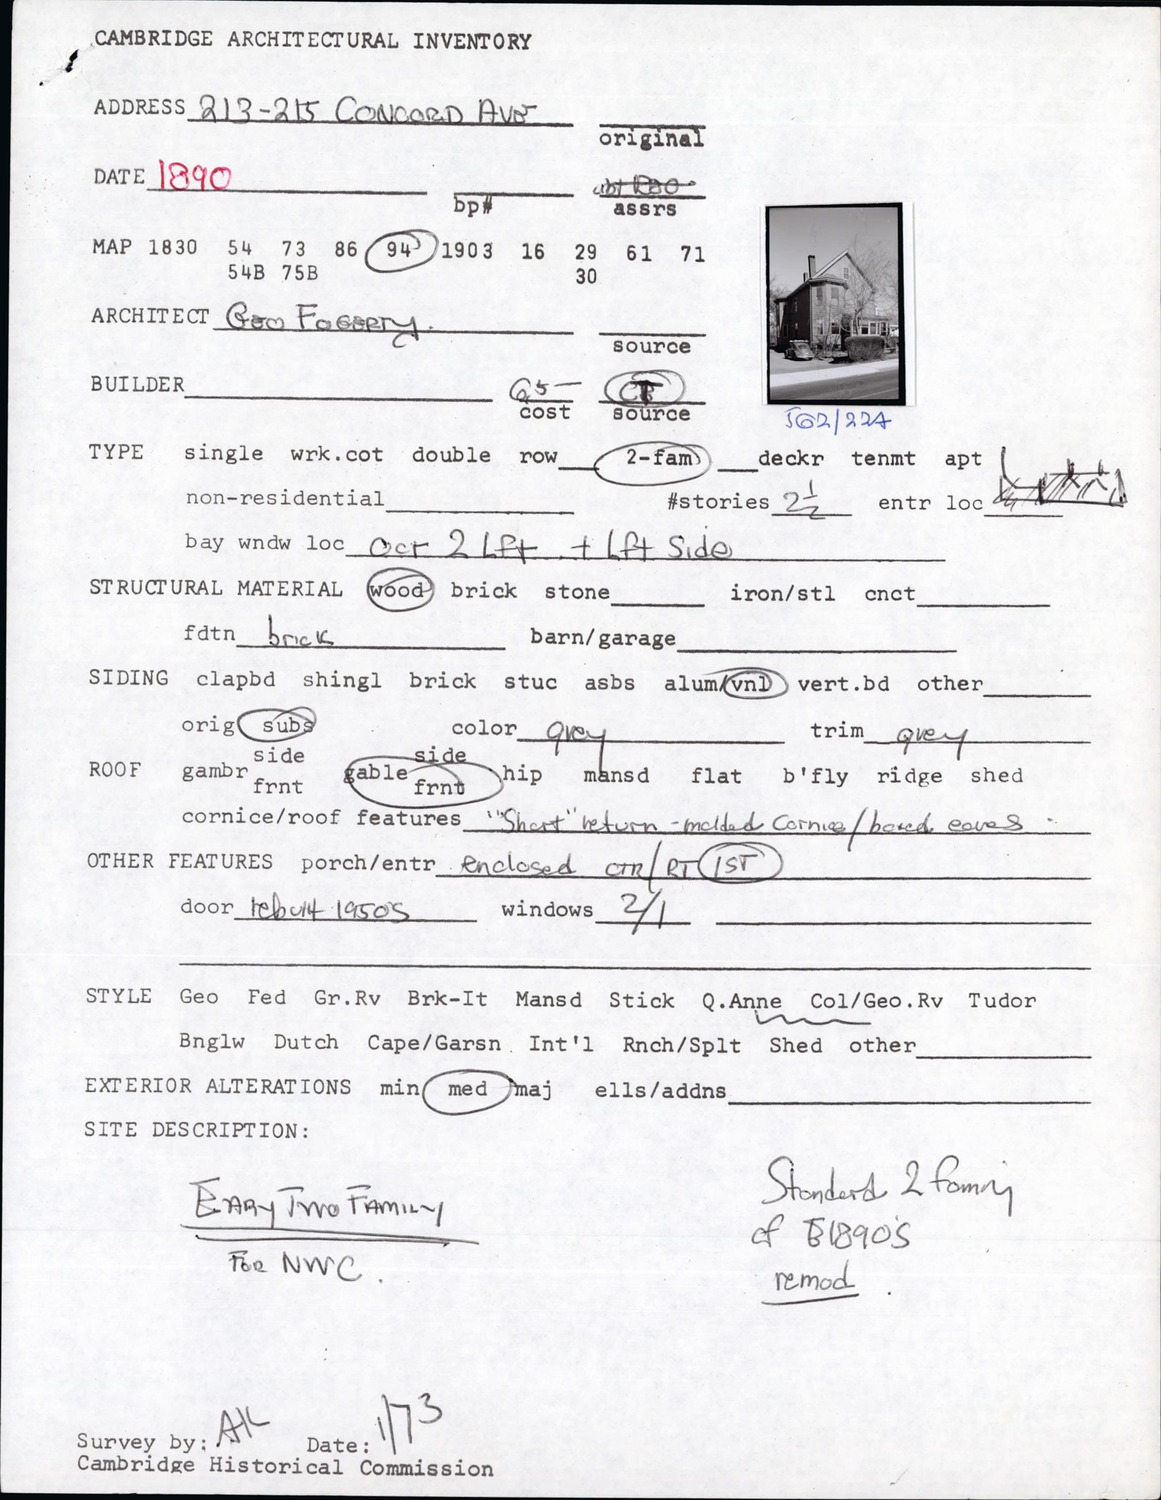 CAMBRIDGE ARCHITECTURAL INVENTORY
ADDRESS 213-215 CONCORD AVE
original
DATE 1890
bp# assrs
MAP 1830 54 73 86 94 1903 16 29 61 71
54B 75B 30
ARCHITECT Geo Fogerty.
source
BUILDER 65— CT
cost source
562/22A
TYPE single wrk.cot double row 2-fam deckr tenmt apt
non-residential #stories 2 1/2 entr loc
bay wndw loc oct 2 Lft + Lft Side
STRUCTURAL MATERIAL wood brick stone iron/stl cnct
fdtn brick barn/garage
SIDING clapbd shingl brick stuc asbs alum/vnl vert.bd other
orig subs color grey trim grey
ROOF gambr side frnt gable side frnt hip mansd flat b'fly ridge shed
cornice/roof features "Short" return - molded Cornice/boxed eaves
OTHER FEATURES porch/entr enclosed CTR/RT 1ST
door rebuilt 1950's windows 2/1
STYLE Geo Fed Gr.Rv Brk-It Mansd Stick Q.Anne Col/Geo.Rv Tudor
Bnglw Dutch Cape/Garsn Int'l Rnch/Splt Shed other
EXTERIOR ALTERATIONS min med maj ells/addns
SITE DESCRIPTION:
EARY TWO FAMILY
FOR NWC.
Standard 2 Family
of E1890's
remod.
Survey by: AK Date: 1/73
Cambridge Historical Commission